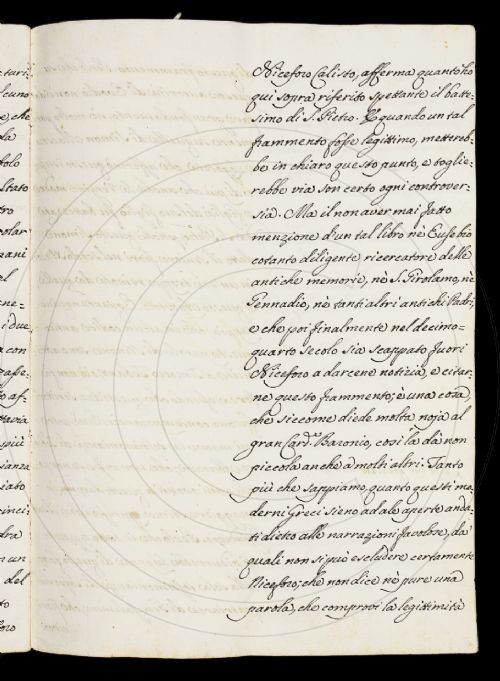 Niceforo Calisto, afferma quanto ho
qui sopra riferito spettante il batte-
simo di S. Pietro. E quando un tal
frammento fosse legittimo, mettereb-
be in chiaro questo punto, e toglie-
rebbe via son certo ogni controver-
sia. Ma il non aver mai fatto
menzione d'un tal libro nè Eusebio
cotanto diligente ricercatore delle
antiche memorie, nè S. Girolamo, nè
Gennadio, nè tanti altri antichi Padri,
e che poi finalmente nel decimo-
quarto secolo sia scappato fuori
Niceforo a darcene notizia, e citar-
ne questo frammento; è una cosa,
che siccome diede molta noja al
gran Card. Baronio, così la dà non
piccola anche a molti altri. Tanto
più che sappiamo, quanto questi mo-
derni Greci sieno ad ale aperte anda-
ti dietro alle narrazioni favolose, da'
quali non si può escludere certamente
Niceforo; che non dice nè pure una
parola, che comprovi la legittimità